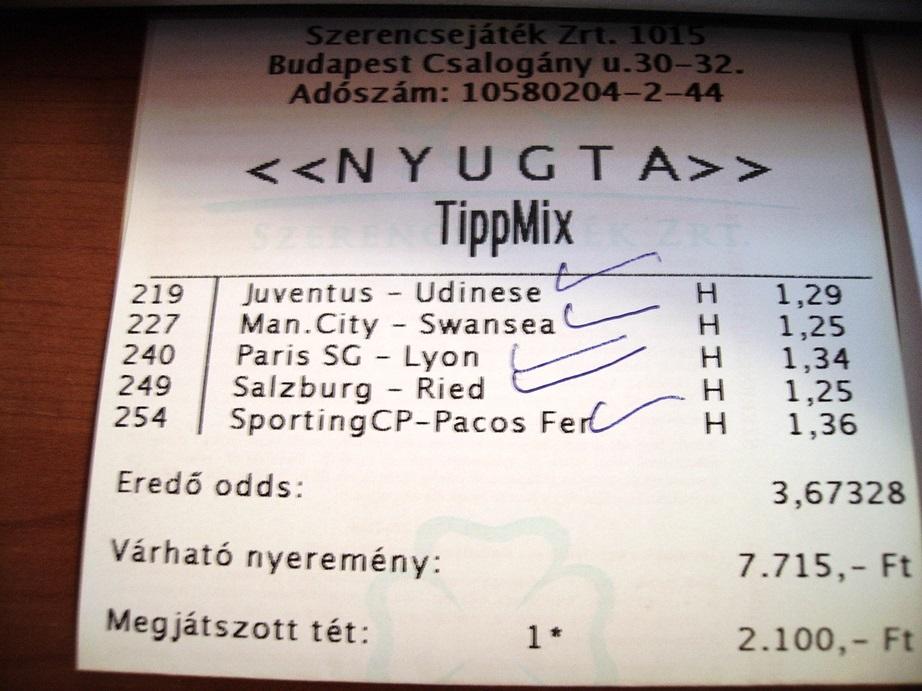 Szerencsejáték Zrt. 1015
Budapest Csalogány u.30-32.
Adószám: 10580204-2-44
<<NYUGTA>>
TippMix
SZERENCSEJÁTÉK ZRT.
219 Juventus - Udinese H 1,29
227 Man.City - Swansea H 1,25
240 Paris SG - Lyon H 1,34
249 Salzburg - Ried H 1,25
254 SportingCP-Pacos Fer H 1,36
Eredő odds: 3,67328
Várható nyeremény: 7.715,- Ft
Megjátszott tét: 1* 2.100,- Ft